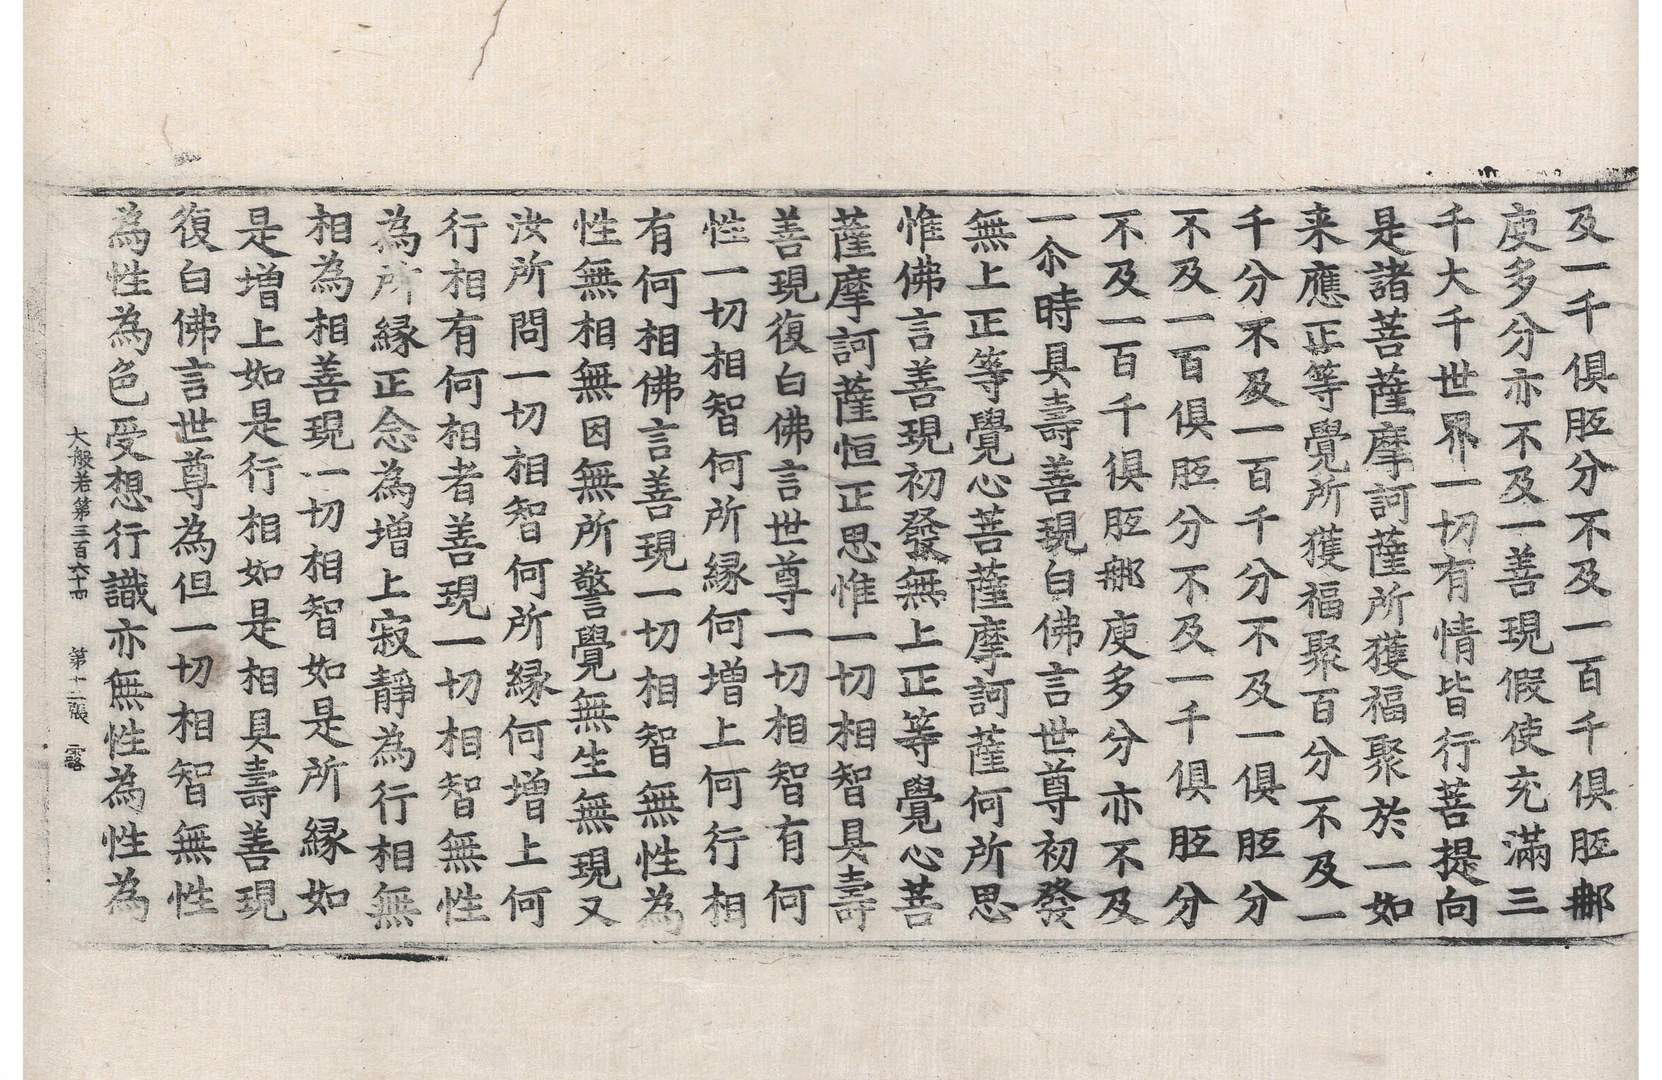 及一千俱胝分不及一百千俱胝那
庾多分亦不及一善現假使充滿三
千大千世界一切有情皆行菩提向
是諸菩薩摩訶薩所獲福聚於一如
来應正等覺所獲福聚百分不及一
千分不及一百千分不及一俱胝分
不及一百俱胝分不及一千俱胝分
不及一百千俱胝那庾多分亦不及
一尒時具壽善現白佛言世尊初發
無上正等覺心菩薩摩訶薩何所思
惟佛言善現初發無上正等覺心菩
薩摩訶薩恒正思惟一切相智具壽
善現復白佛言世尊一切相智有何
性一切相智何所縁何增上何行相
有何相佛言善現一切相智無性為
性無相無因無所警覺無生無現又
汝所問一切相智何所縁何增上何
行相有何相者善現一切相智無性
為所縁正念為增上寂靜為行相無
相為相善現一切相智如是所縁如
是增上如是行相如是相具壽善現
復白佛言世尊為但一切相智無性
為性為色受想行識亦無性為性為
大般若第三百六十四 第十二張 露